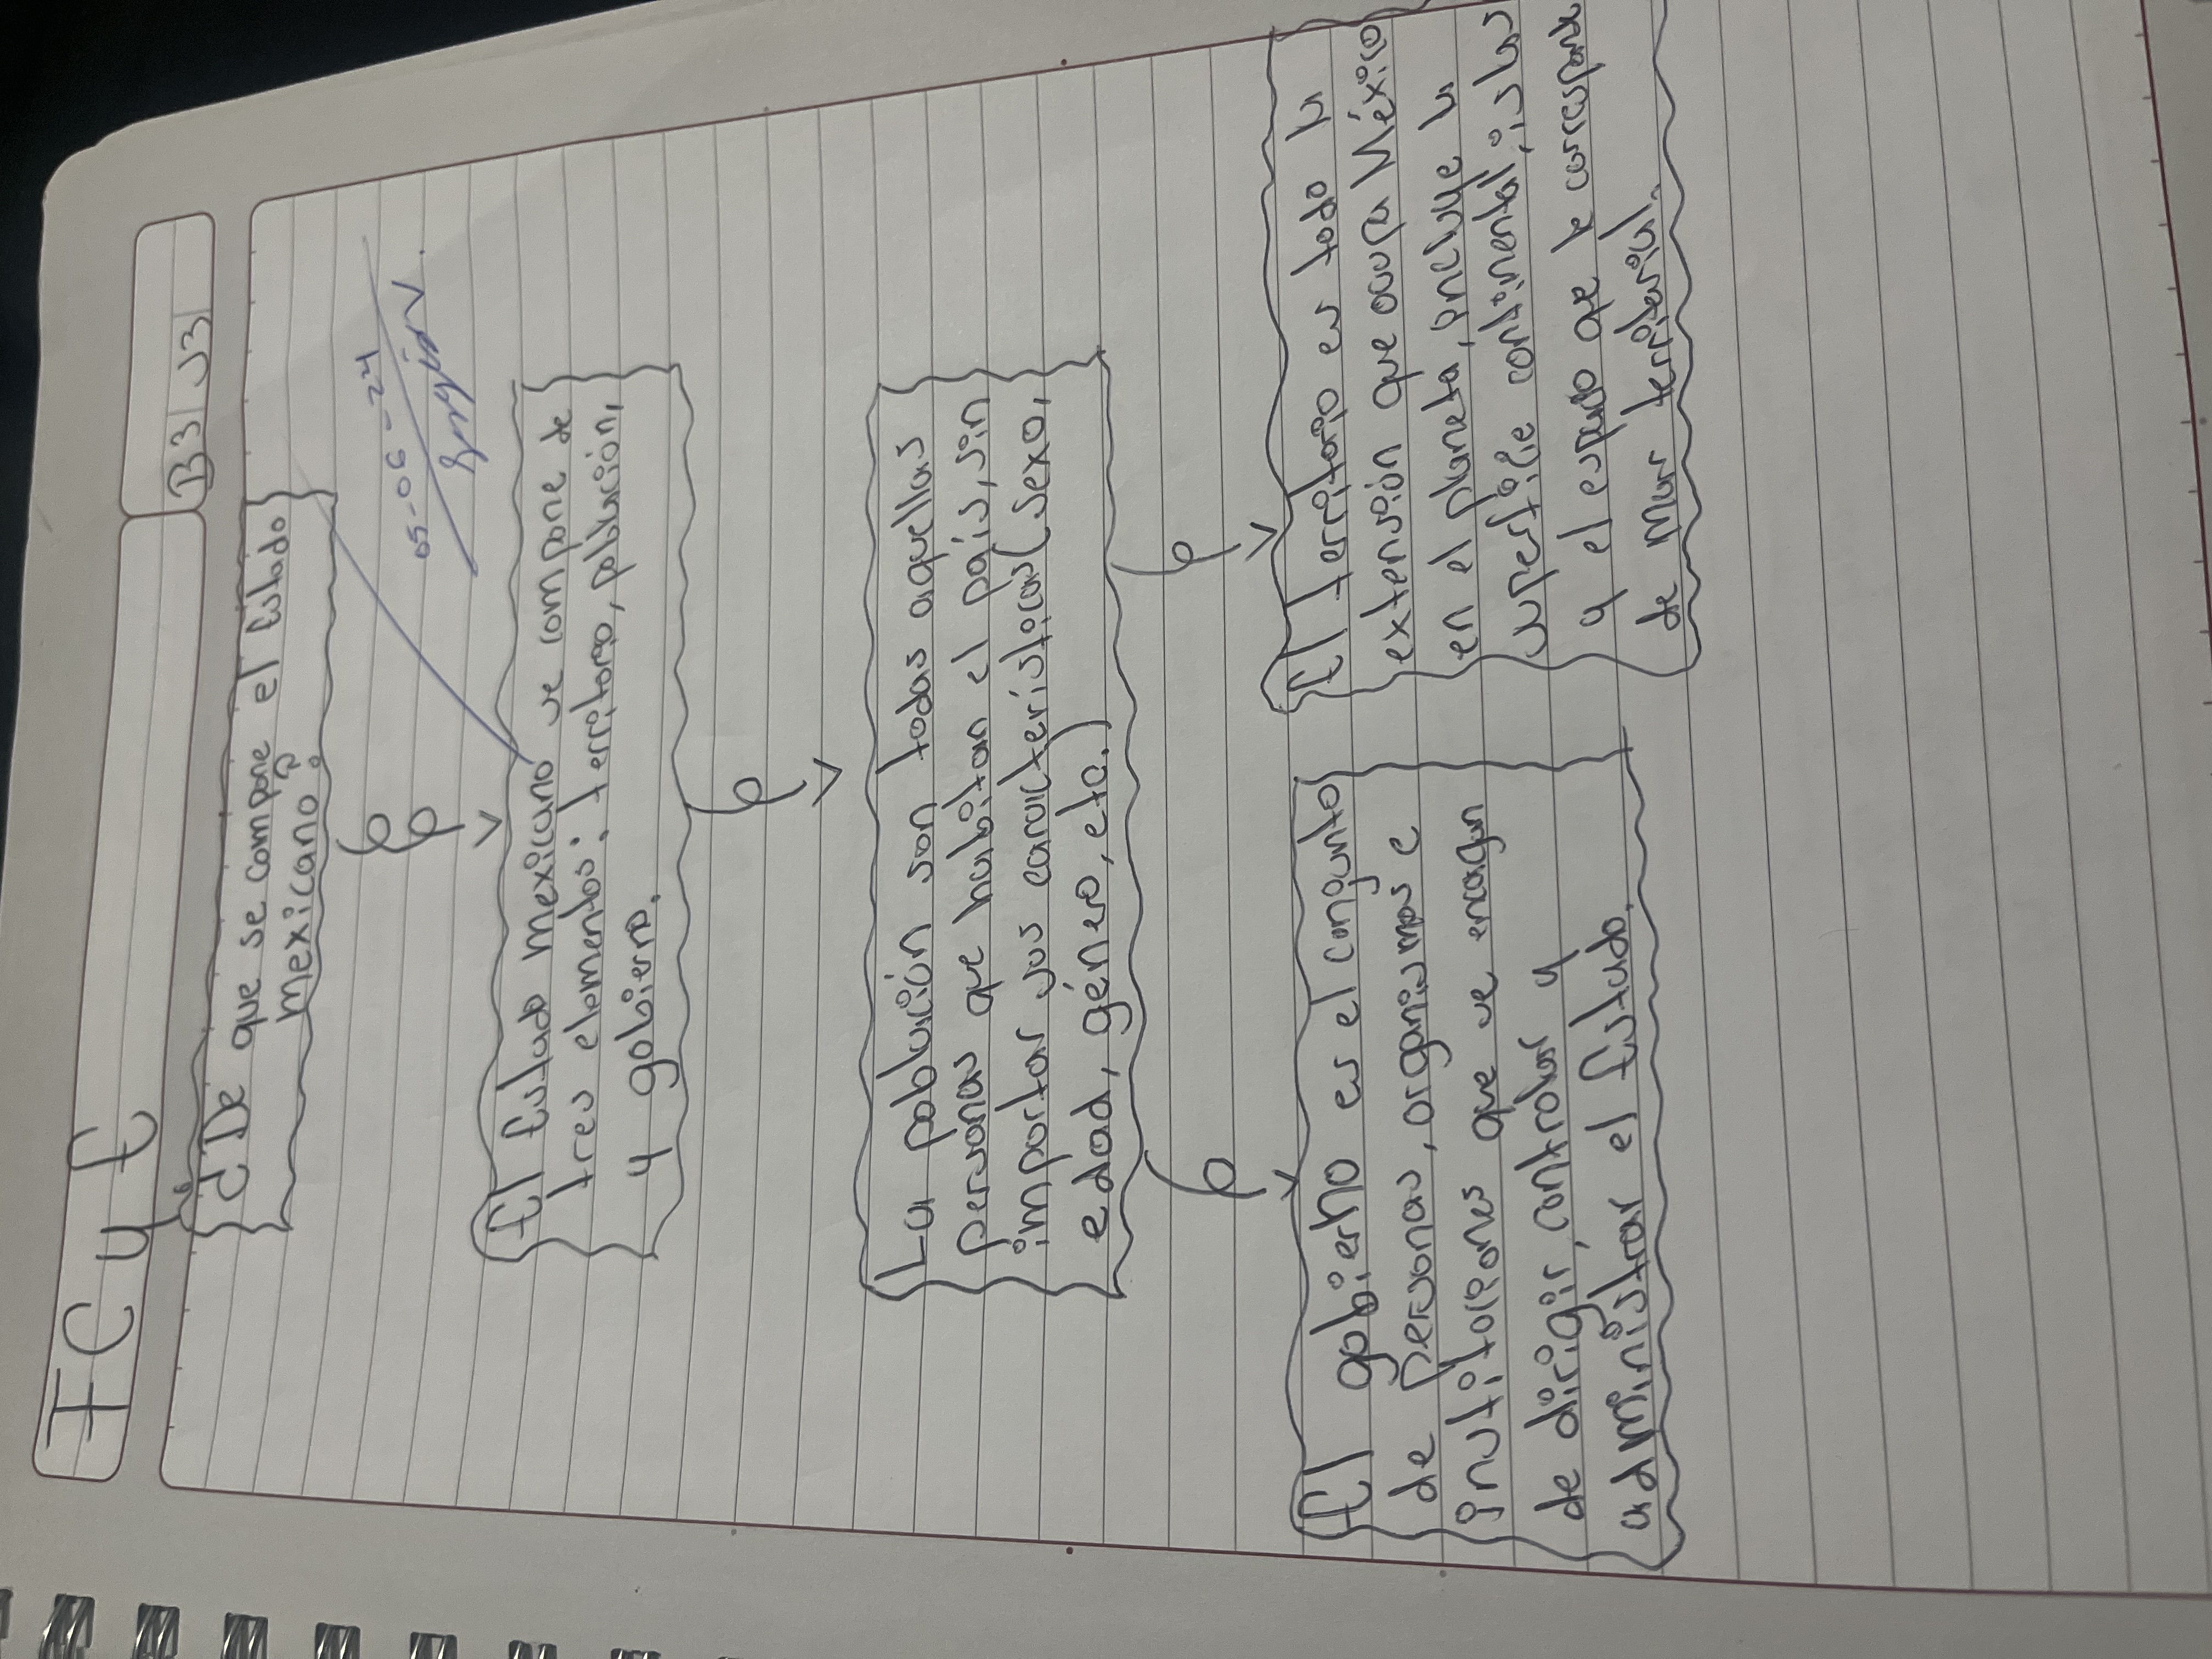 F C y E
B3 S3
¿De que se compone el Estado
mexicano?
05-06-24
El Estado mexicano se compone de
tres elementos: territorio, población,
y gobierno.
La población son todas aquellas
personas que habitan el país, sin
importar sus características (sexo,
edad, género, etc.)
El gobierno es el conjunto
de personas, organismos e
instituciones que se encargan
de dirigir, controlar y
administrar el Estado.
El territorio es todo la
extensión que ocupa México
en el planeta, incluye la
superficie continental, islas
y el espacio que le corresponde
de Mar territorial.